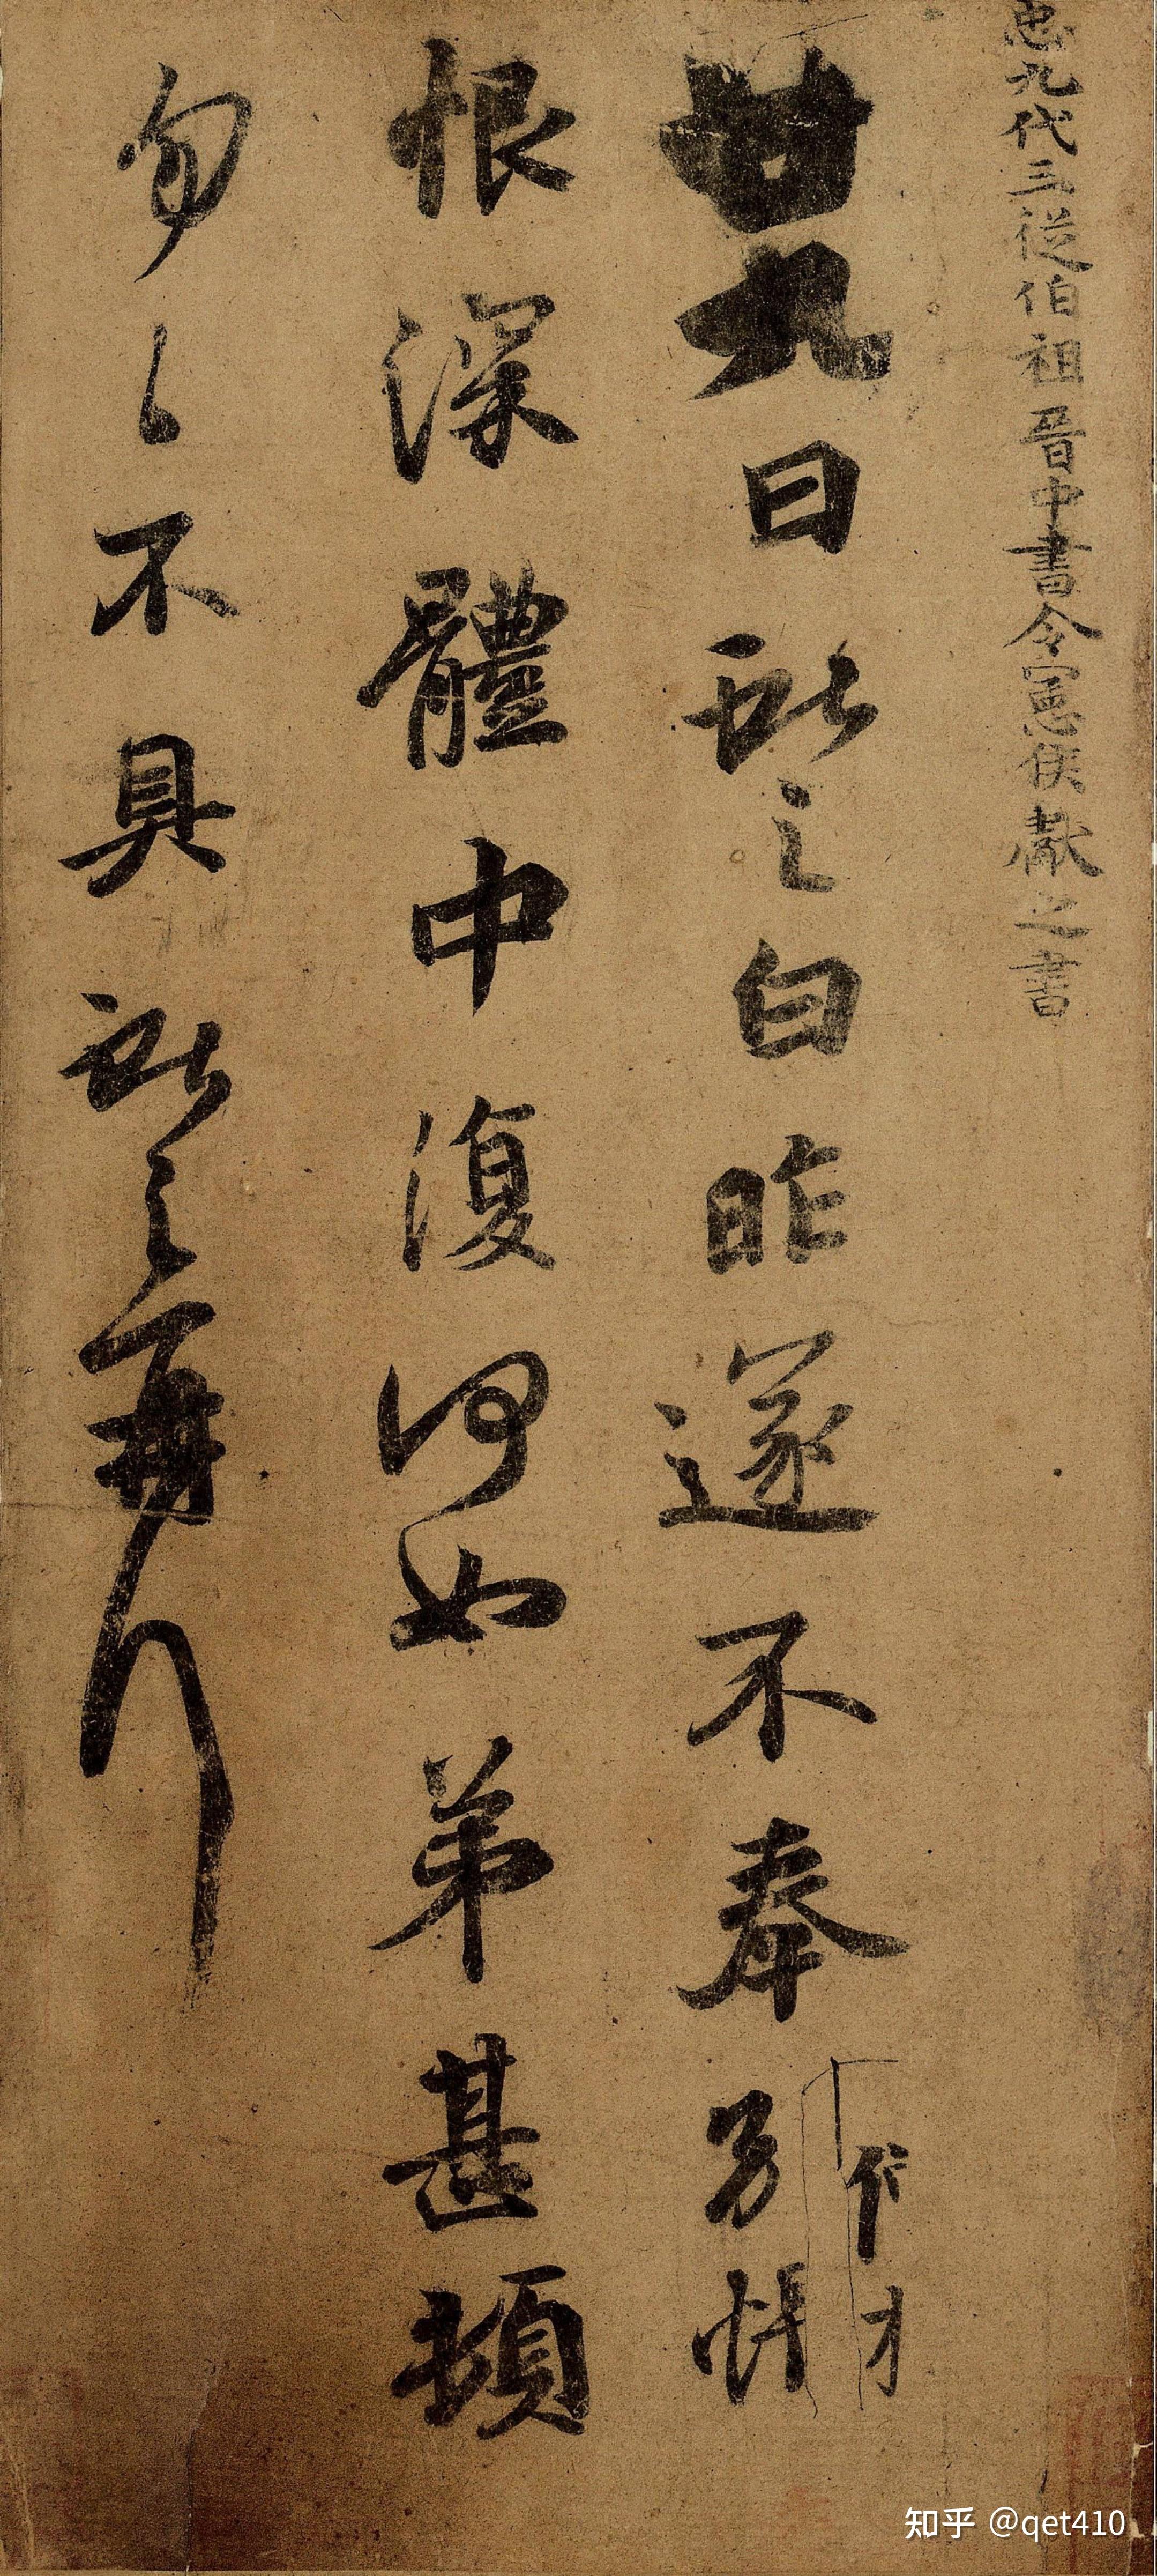 九代三從伯祖晉中書令憲侯獻之書
廿九日獻之白昨遂不奉別悵
恨深體中復何如弟甚頓
匆々不具獻之再拜
知乎 @qet410